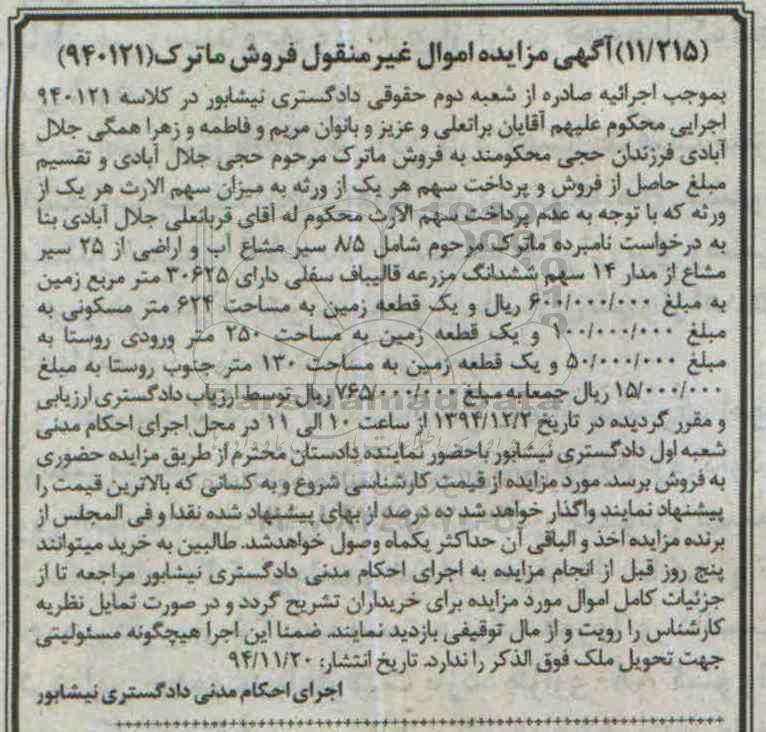 (۱۱/۲۱۵) آگهی مزایده اموال غیر منقول فروش ماترک (۹۴۰۱۲۱)
بموجب اجرائیه صادره از شعبه دوم حقوقی دادگستری نیشابور در کلاسه ۹۴۰۱۲۱
اجرایی محکوم علیهم آقایان براتعلی و عزیز و بانوان مریم و فاطمه و زهرا همگی جلال
آبادی فرزندان حجی محکومند به فروش ماترک مرحوم حجی جلال آبادی و تقسیم
مبلغ حاصل از فروش و پرداخت سهم هر یک از ورثه به میزان سهم الارث هر یک از
ورثه که با توجه به عدم پرداخت سهم الارث محکوم له آقای قربانعلی جلال آبادی بنا
به درخواست نامبرده ماترک مرحوم شامل ۸/۵ سیر مشاع آب و اراضی از ۲۵ سیر
مشاع از مدار ۱۴ سهم ششدانگ مزرعه قالیباف سفلی دارای ۳۰۶۲۵ متر مربع زمین
به مبلغ ۶۰۰/۰۰۰/۰۰۰ ریال و یک قطعه زمین به مساحت ۶۲۴ متر مسکونی به
مبلغ ۱۰۰/۰۰۰/۰۰۰ و یک قطعه زمین به مساحت ۲۵۰ متر ورودی روستا به
مبلغ ۵۰/۰۰۰/۰۰۰ و یک قطعه زمین به مساحت ۱۳۰ متر جنوب روستا به مبلغ
۱۵/۰۰۰/۰۰۰ ریال جمعا به مبلغ ۷۶۵/۰۰۰/۰۰۰ ریال توسط ارزیاب دادگستری ارزیابی
و مقرر گردیده در تاریخ ۱۳۹۴/۱۲/۲ از ساعت ۱۰ الی ۱۱ در محل اجرای احکام مدنی
شعبه اول دادگستری نیشابور باحضور نماینده دادستان محترم از طریق مزایده حضوری
به فروش برسد. مورد مزایده از قیمت کارشناسی شروع و به کسانی که بالاترین قیمت را
پیشنهاد نمایند واگذار خواهد شد ده درصد از بهای پیشنهاد شده نقدا و فی المجلس از
برنده مزایده اخذ و الباقی آن حداکثر یکماه وصول خواهدشد. طالبین به خرید میتوانند
پنج روز قبل از انجام مزایده به اجرای احکام مدنی دادگستری نیشابور مراجعه تا از
جزئیات کامل اموال مورد مزایده برای خریداران تشریح گردد و در صورت تمایل نظریه
کارشناس را رویت و از مال توقیفی بازدید نمایند. ضمنا این اجرا هیچگونه مسئولیتی
جهت تحویل ملک فوق الذکر را ندارد. تاریخ انتشار: ۹۴/۱۱/۲۰
اجرای احکام مدنی دادگستری نیشابور